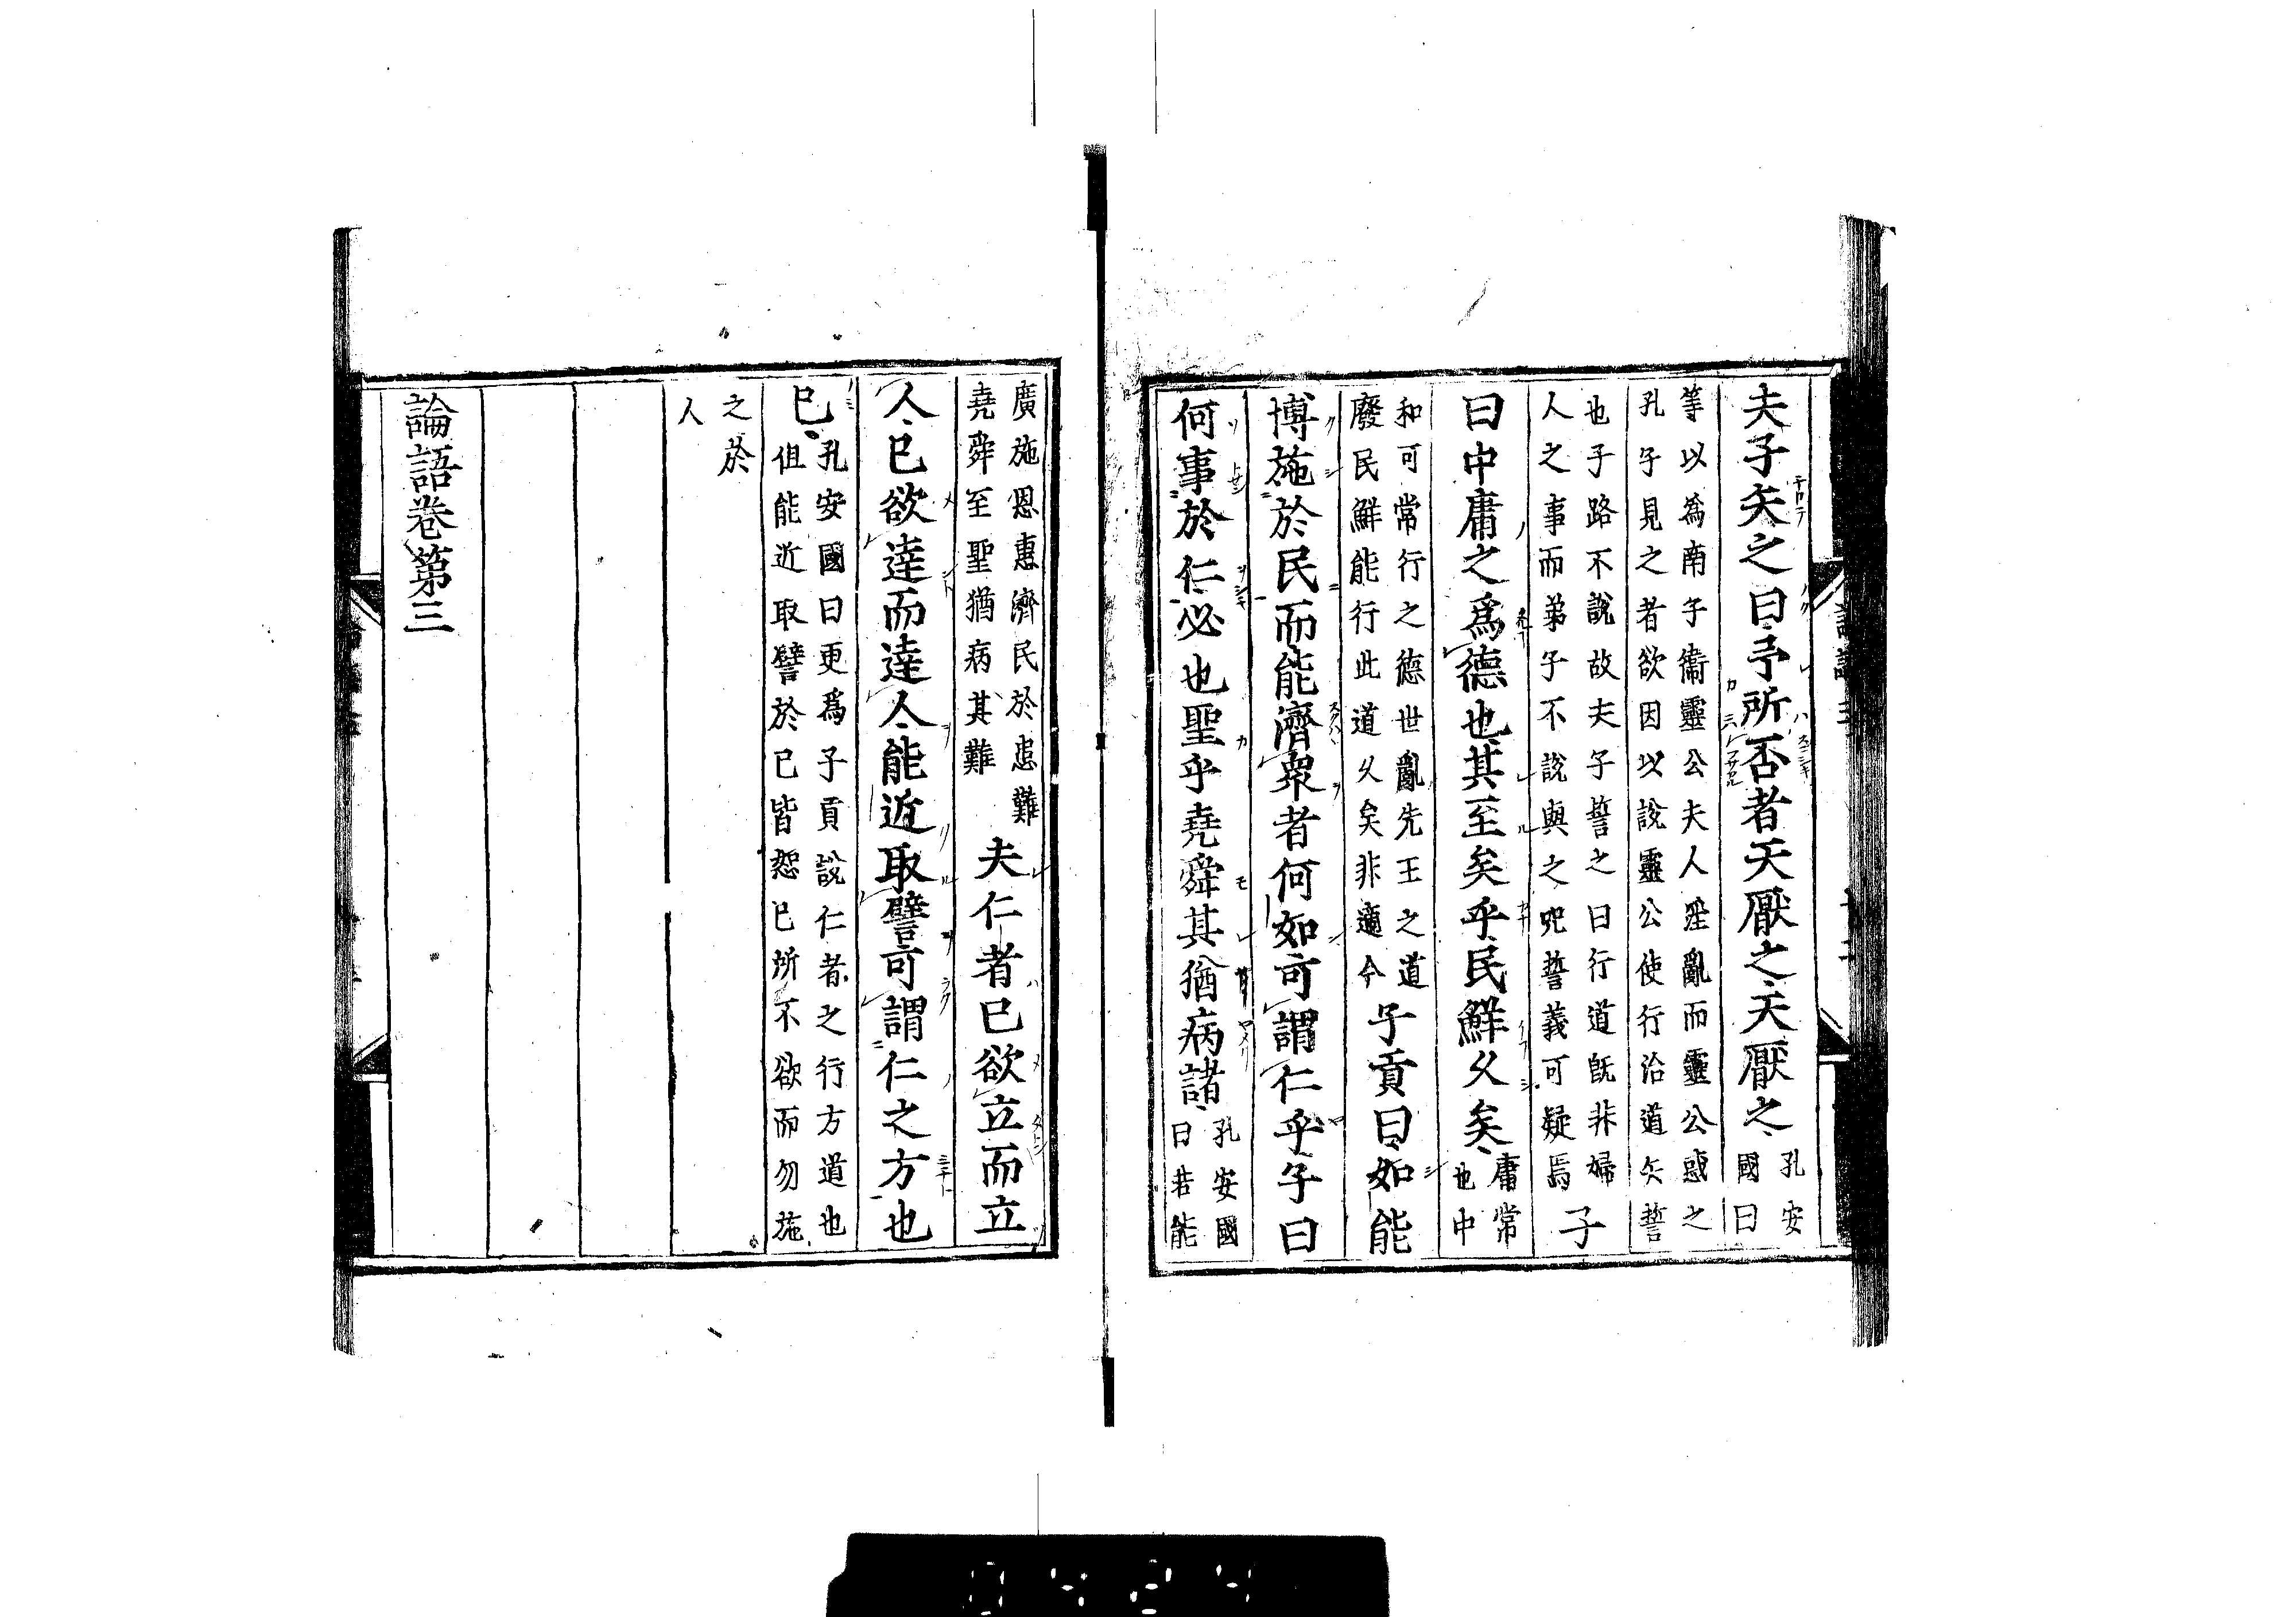 夫子矢之曰予所否者天厭之天厭之孔安國曰
等以為南子衞靈公夫人淫亂而靈公惑之孔子見之者欲因以說靈公使行治道矢誓
也子路不說故夫子誓之曰行道旣非婦人之事而弟子不說與之呪誓義可疑焉子
曰中庸之爲德也其至矣乎民鮮久矣庸常也中
和可常行之德世亂先王之道廢民鮮能行此道久矣非適今子貢曰如能
博施於民而能濟衆者何如可謂仁乎子曰
何事於仁必也聖乎堯舜其猶病諸孔安國曰若能
廣施恩惠濟民於患難堯舜至聖猶病其難夫仁者己欲立而立
人己欲達而達人能近取譬可謂仁之方也
已孔安國曰更爲子貢說仁者之行方道也但能近取譬於己皆恕己所不欲而勿施
之於人
論語卷第三